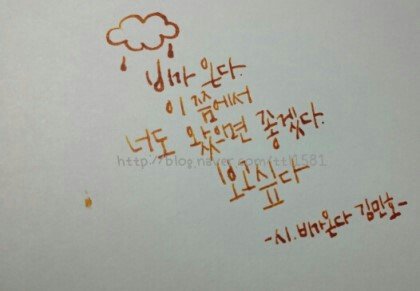 비가 온다.
이 쯤에서
너도 왔으면 좋겠다.
http://blog.naver.com/ttl1581
보고싶다
-시. 비가온다 김민호-